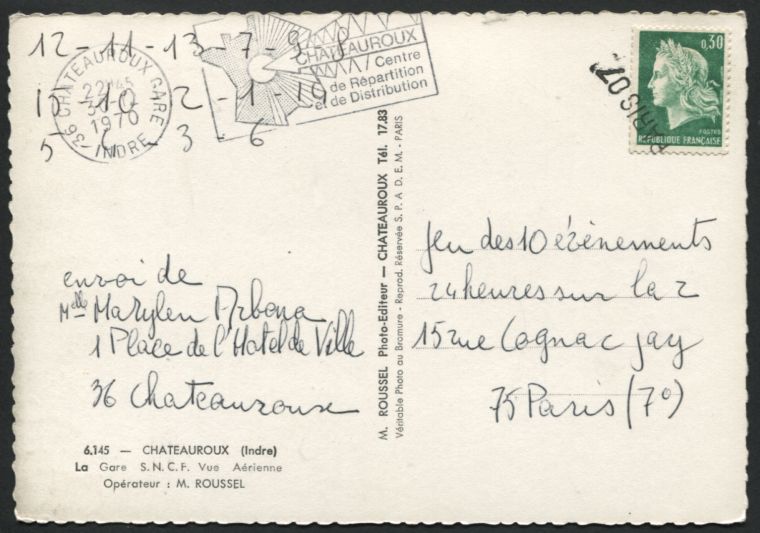 12-11-13-7-9-8
15-10-2-1-19
5-6-3-6
36 CHATEAUROUX GARE
22H45
1970
INDRE
CHATEAUROUX
Centre
de Répartition
et de Distribution
0,30
POSTES
REPUBLIQUE FRANÇAISE
PARIS 07
envoi de
Melle Marylen
1 Place de l'Hotel de Ville
36 Chateauroux
6.145 — CHATEAUROUX (Indre)
La Gare S.N.C.F. Vue Aérienne
Opérateur : M. ROUSSEL
M. ROUSSEL Photo-Editeur — CHATEAUROUX Tél. 17.83
Véritable Photo au Bromure - Reprod. Réservée S. P. A. D. E. M. - PARIS
Jeu des 10 évènements
24 heures sur la 2
15 rue Cognac jay
75 Paris (7°)